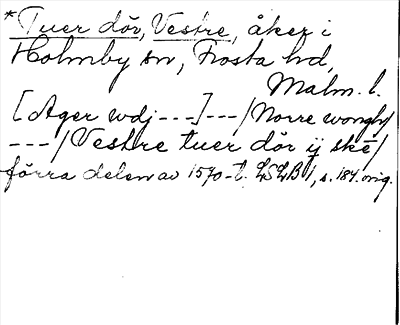 *Tuer dör, Vestre, åker i
Holmby sn, Frosta hd,
Malm. l.
[Ager wdj---]---/Norre wongh/
---/Vestre tuer dör ij skē/
förra delen av 1570-t. LSLB 1, s. 184. orig.